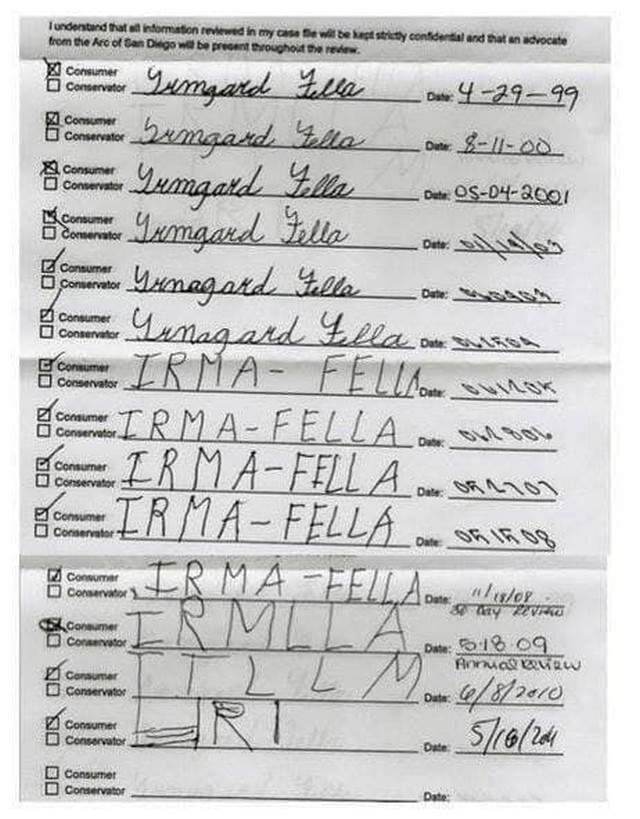 I understand that all information reviewed in my case file will be kept strictly confidential and that an advocate
from the Arc of San Diego will be present throughout the review.
Consumer
Conservator Yrmgard Fella Date: 4-29-99
Consumer
Conservator Yrmgard Fella Date: 8-11-00
Consumer
Conservator Yrmgard Fella Date: 05-04-2001
Consumer
Conservator Yrmgard Fella Date:
Consumer
Conservator Yrnagard Fella Date:
Consumer
Conservator Yrnagard Fella Date:
Consumer
Conservator IRMA- FELLA Date:
Consumer
Conservator IRMA-FELLA Date:
Consumer
Conservator IRMA-FELLA Date:
Consumer
Conservator IRMA-FELLA Date:
Consumer
Conservator IRMA-FELLA Date: 11/18/08
30 Day Review
Consumer
Conservator IRMLLA Date: 5-18-09
Annual Review
Consumer
Conservator ITLLM Date: 6/8/2010
Consumer
Conservator RI Date: 5/16/2011
Consumer
Conservator Date: